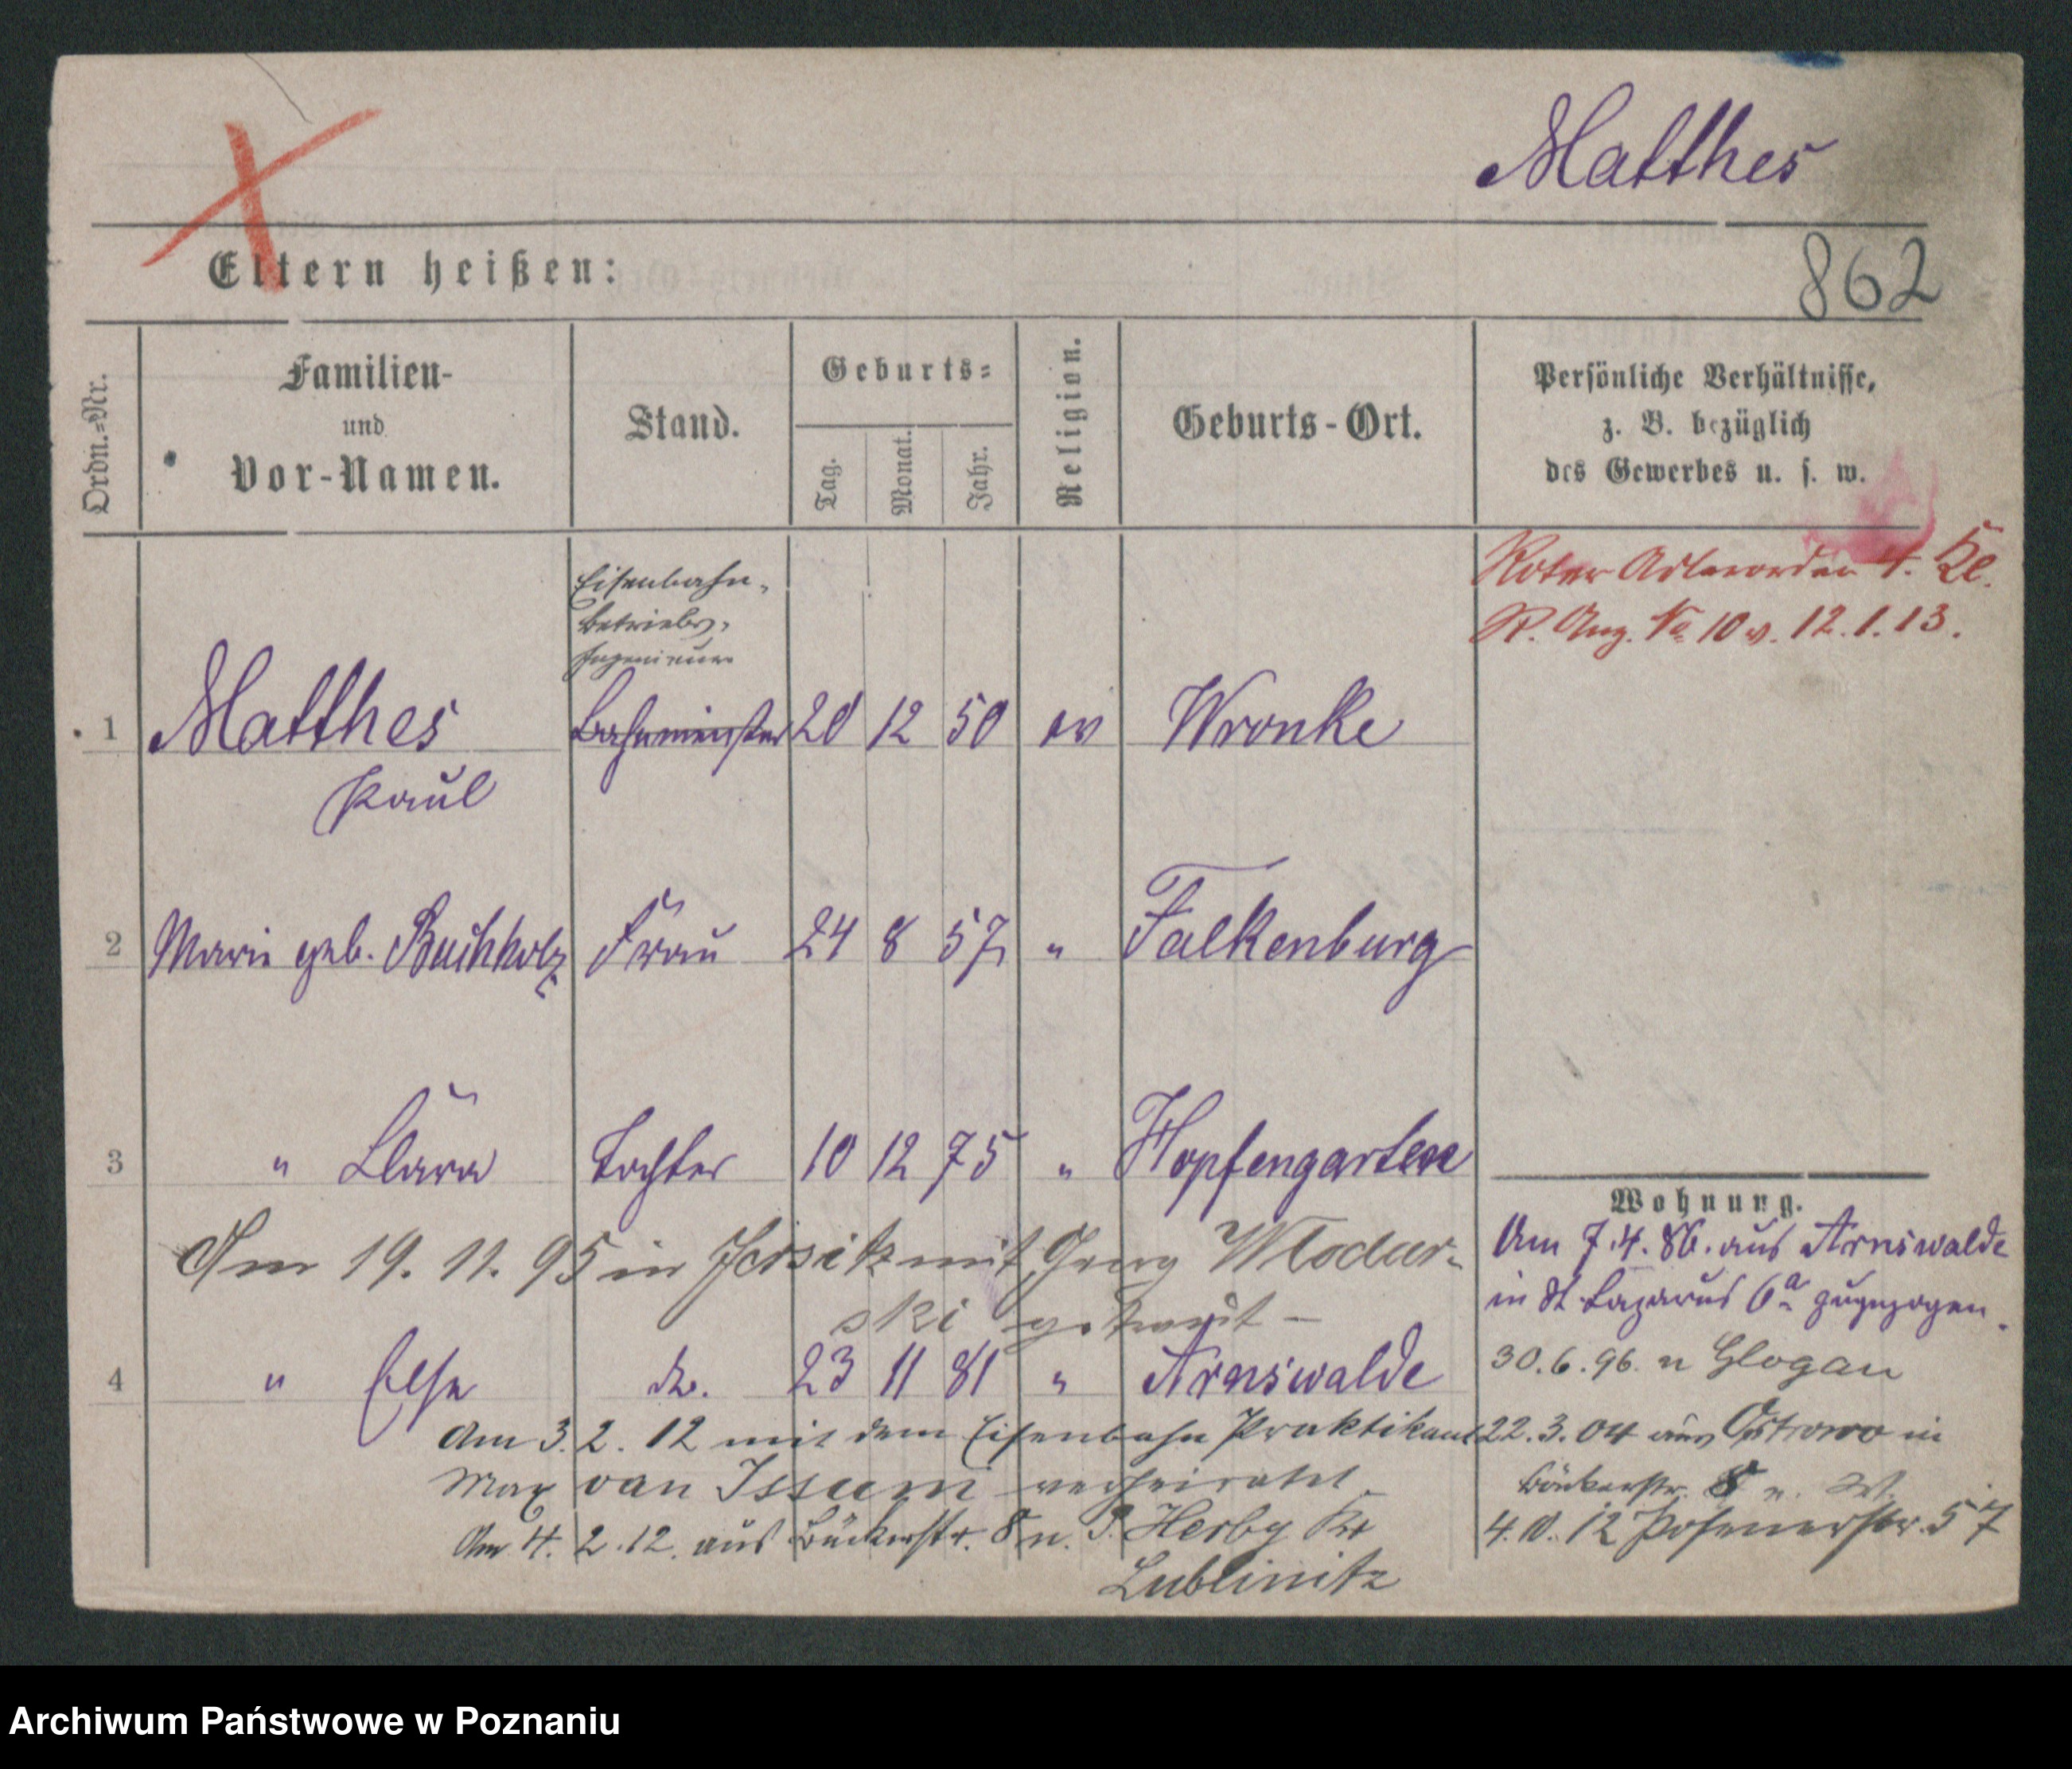 Matthes
862
Eltern heißen:
Ordn.=Nr.
Familien-
und
Vor-Namen.
Stand.
Geburts=
Tag.
Monat.
Jahr.
Religion.
Geburts-Ort.
Persönliche Verhältnisse,
z. B. bezüglich
des Gewerbes u. s. w.
Roter Adlerorden 4. Kl.
R. Anz. No 10 v. 12.1.13.
Eisenbahn-
betriebs-
Ingenieur
1 Matthes Bahnmeister 20 12 50 ev Wronke
Paul
2 Marie geb. Buchholz Frau 24 8 57 " Falkenburg
3 " Clara Tochter 10 12 75 " Hopfengarten
Am 19. 11. 95 in Jersitz mit Georg Wlodar-
ski getraut –
4 " Else do. 23 11 81 " Arnswalde
Am 3. 2. 12 mit dem Eisenbahn Praktikant
Max van Issum verheiratet
Am 4. 2. 12. aus Bäckerstr. 8 n. P. Herby Kr
Lublinitz
Wohnung.
Am 7.4.86. aus Arnswalde
in St Lazarus 6a zugezogen.
30.6.96. n Glogau
22.3.04 aus Ostrowo in
Bäckerstr. 8 n. W.
4.10.12 Posenerstr. 57
Archiwum Państwowe w Poznaniu